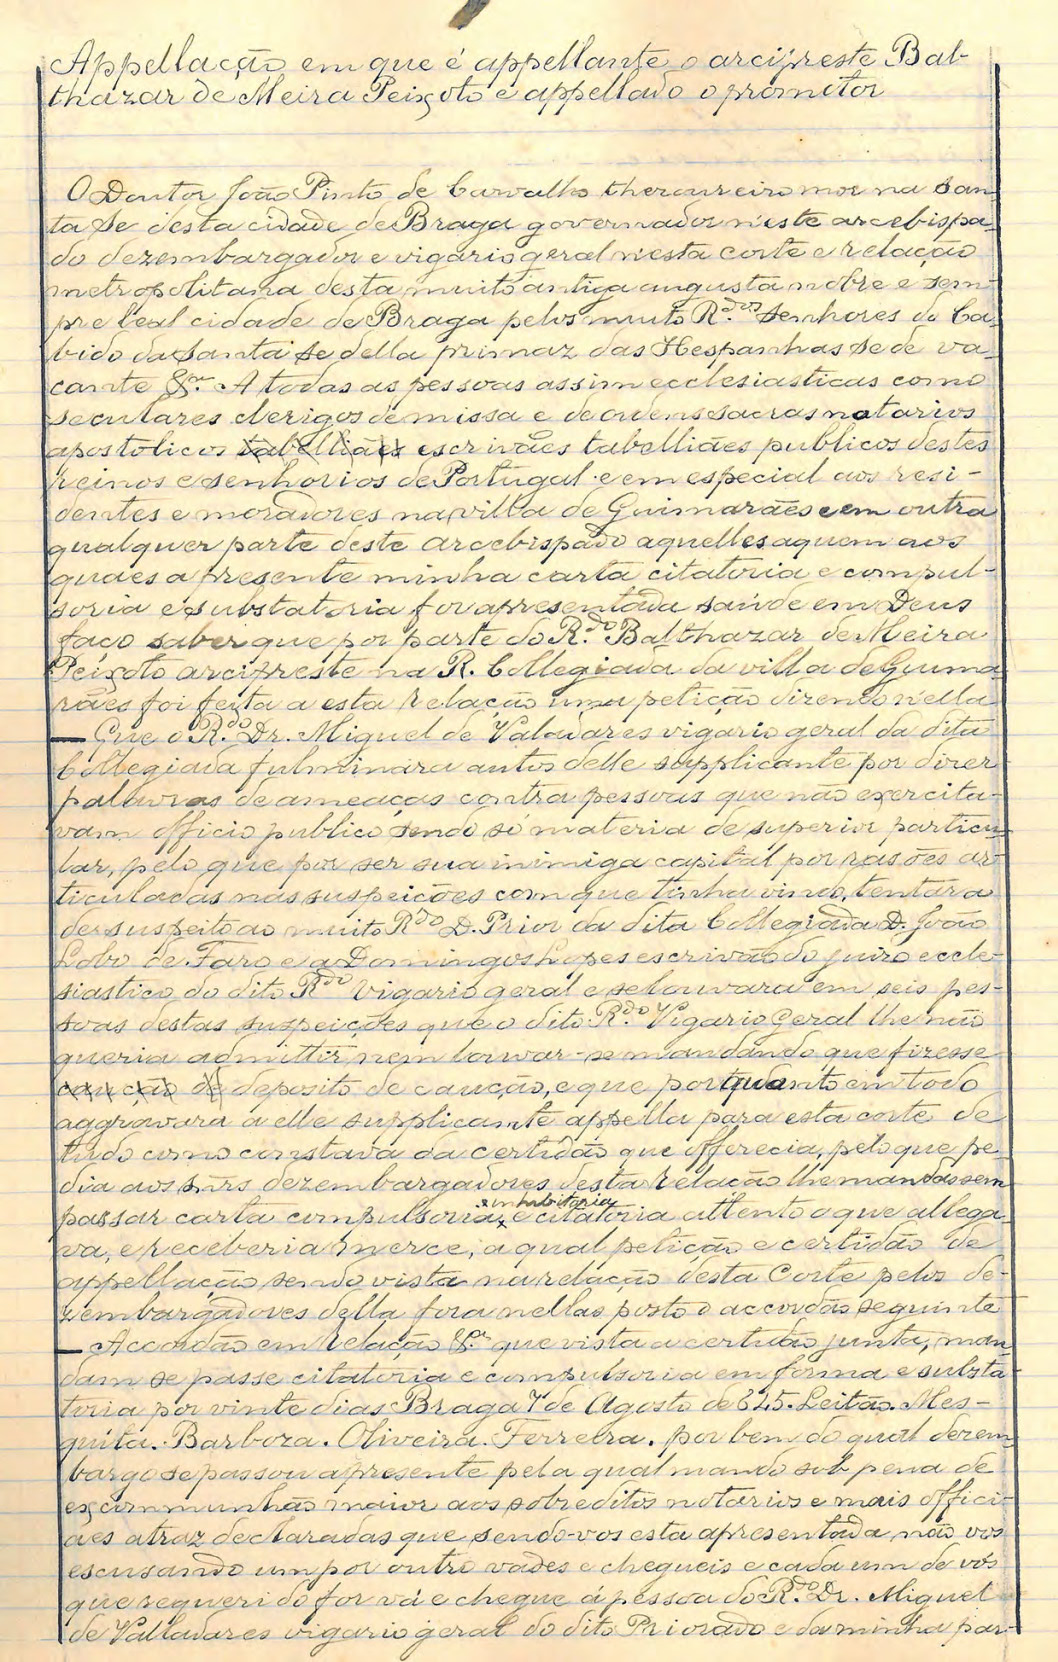 Appellação em que é appellante o arcipreste Bal-
thazar de Meira Peixoto e appellado o promotor
O Doutor João Pinto de Carvalho thesoureiro mor na San-
ta Sé desta cidade de Braga governador n'este arcebispa-
do dezembargador e vigario geral n'esta corte e relação
metropolitana desta muito antiga augusta nobre e sem-
pre leal cidade de Braga pelos muito R.dos Senhores do Ca-
bido da Santa Se della primaz das Hespanhas Sede va-
cante &.a A todas as pessoas assim ecclesiasticas como
seculares clerigos de missa e de ordens sacras notarios
apostolicos tabelliães escrivães tabelliães publicos destes
reinos e senhorios de Portugal e em especial aos resi-
dentes e moradores na villa de Guimarães e em outra
qualquer parte deste arcebispado aquelles a quem aos
quaes a presente minha carta citatoria e compul-
soria e substatoria for apresentada saúde em Deus
faço saber que por parte do R.do Balthazar de Meira
Peixoto arcipreste na R. Collegiada da villa de Guima-
rães foi feita a esta relação uma petição dizendo n'ella
— Que o R.do Dr. Miguel de Valadares vigario geral da dita
Collegiada fulminara autos delle supplicante por dizer
palavras de ameaças contra pessoas que não exercita-
vam officio publico sendo só materia de superior particu-
lar, pelo que por ser sua inimiga capital por rasões ar-
ticuladas nas suspeições com que tinha vindo, tentára
de suspeito ao muito R.do D. Prior da dita Collegiada D. João
Lobo de Faro e a Domingos Lopes escrivão do juizo eccle-
siastico do dito R.do Vigario geral e se louvara em seis pes-
soas destas suspeições que o dito R.do Vigario Geral lhe não
queria admittir, nem louvar-se mandando que fizesse
caução de deposito de caução, e que porquanto em todo
aggravara a elle supplicante appella para esta corte de
tudo como constava da certidão que offerecia, pelo que pe-
dia aos snrs dezembargadores desta relação lhe mandassem
passar carta compulsoria, e inhabitoria e citatoria attento o que allega-
va, e receberia merce, a qual petição e certidão de
appellação sendo vista na relação desta Corte pelos de-
zembargadores della fora nellas posto o accordão seguinte
— Accordão em relação &.a que vista a certidão junta, man-
dam se passe citatoria e compulsoria em forma e substa-
toria por vinte dias Braga 7 de Agosto de 625. Leitão. Mes-
quita. Barboza. Oliveira. Ferreira. por bem do qual dezem-
bargo se passou a presente pela qual mando sob pena de
excommunhão maior aos sobreditos notarios e mais offici-
aes atraz declaradas que sendo-vos esta apresentada, não vos
escusando um por outro vades e chegueis e cada um de vós
que requerido for vá e chegue á pessoa do R.do Dr. Miguel
de Valladares vigario geral do dito Priorado e da minha par-